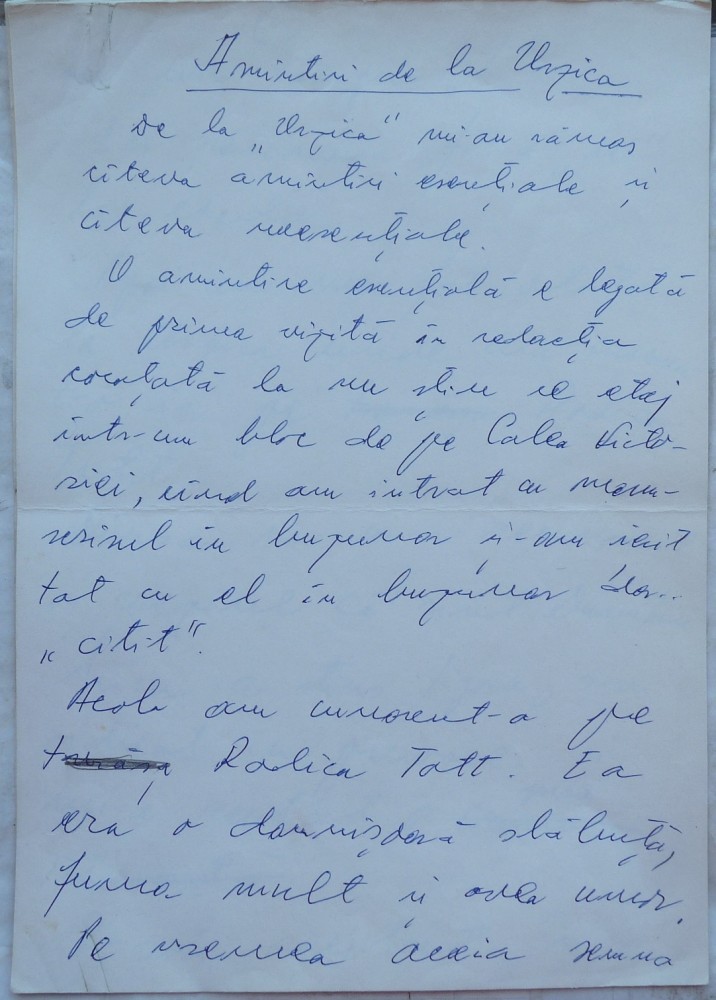 Amintiri de la Urzica
De la „Urzica” mi-au rămas
cîteva amintiri esențiale și
cîteva neesențiale.
O amintire esențială e legată
de prima vizită în redacția
cocoțată la nu știu ce etaj
într-un bloc de pe Calea Victo-
riei, cînd am intrat cu manu-
scrisul în buzunar și-am ieșit
tot cu el în buzunar dar..
„citit”.
Acolo am cunoscut-o pe
Rodica Tott. Ea
era o domnișoară slăbuță,
fuma mult și avea umor.
Pe vremea aceia semna